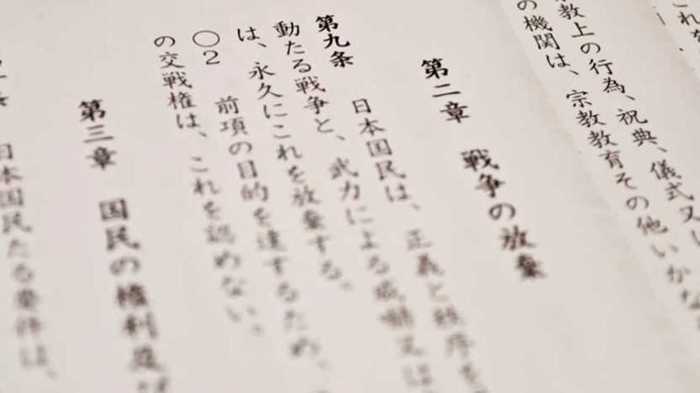 これを
教上の行為、祝典、儀式又
の機関は、宗教教育その他いかな
第二章 戦争の放棄
第九条 日本国民は、正義と秩序を
動たる戦争と、武力による威嚇又は
は、永久にこれを放棄する。
○2 前項の目的を達するため、
の交戦権は、これを認めない。
第三章 国民の権利及び
条 日本国民たる要件は、